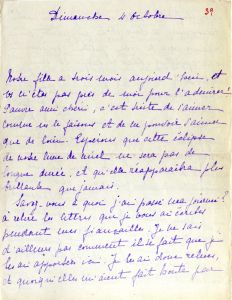 39
Dimanche 4 Octobre
Notre fille a trois mois aujourd'hui, et
tu n'es pas près de moi pour l'admirer!
Pauvre ami chéri, c'est triste de s'aimer
comme nous le faisons et de ne pouvoir s'aimer
que de loin. Espérons que cette éclipse
de notre lune de miel ne sera pas de
longue durée, et qu'elle réapparaîtra plus
brillante que jamais.
Savez-vous à quoi j'ai passé ma journée?
à relire les lettres que je vous ai écrites
pendant mes fiançailles. Je ne sais
d'ailleurs pas comment il se fait que je
les ai apportées ici. Je les ai donc relues,
et quoiqu'elles m'aient fait honte par